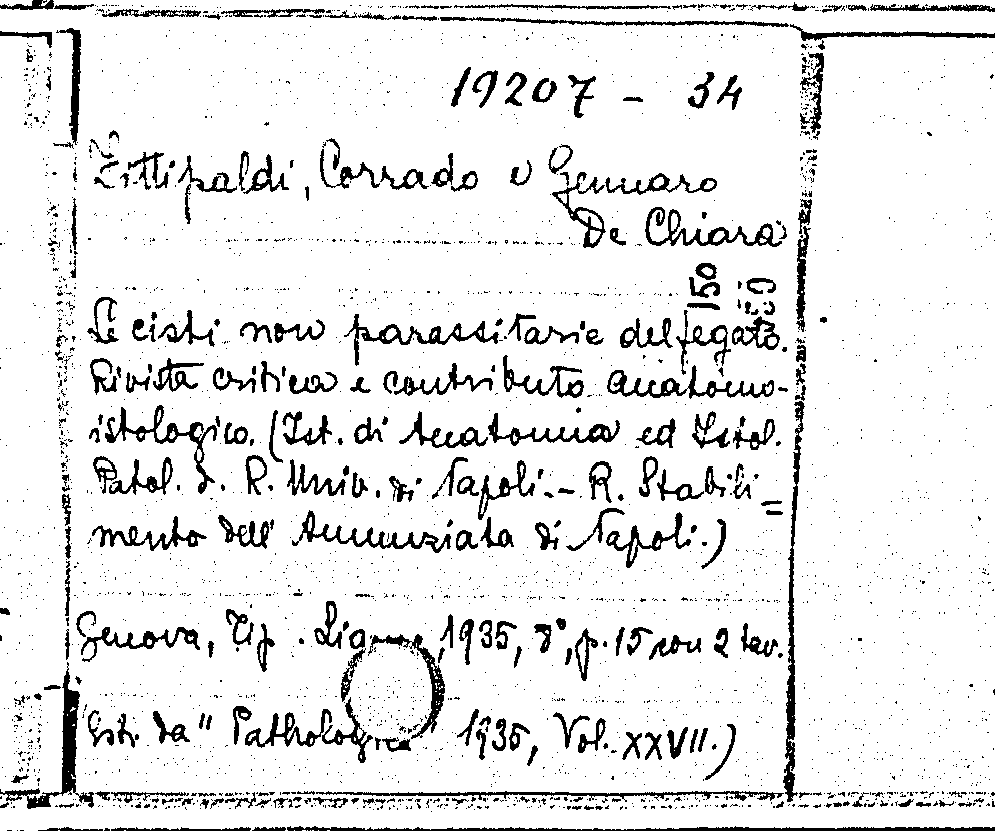 19207 - 34
Zittipaldi, Corrado e Gennaro
De Chiara
150
Le cisti non parassitarie del fegato.
Rivista critica e contributo anatomo-
istologico. (Ist. di Anatomia ed Istol.
Patol. d. R. Univ. di Napoli. - R. Stabili=
mento dell' Annunziata di Napoli.)
Genova, Tip. 1935, 8°, p. 15 con 2 tav.
Estr. da "Pathologica 1935, Vol. XXVII.)